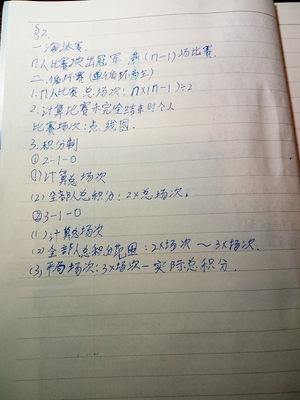 §2.
一.淘汰赛.
n人比赛决出冠军,共(n-1)场比赛
二.循环赛(单循环为主)
1.n人比赛总场次:n×(n-1)÷2
2.计算比赛未完全结束时个人
比赛场次:点线图.
3.积分制
①2-1-0
(1)计算总场次
(2)全部人总积分:2×总场次.
②3-1-0
(1)计算总场次
(2)全部人总积分范围:2×场次~3×场次.
(3)平局场次:3×场次-实际总积分.